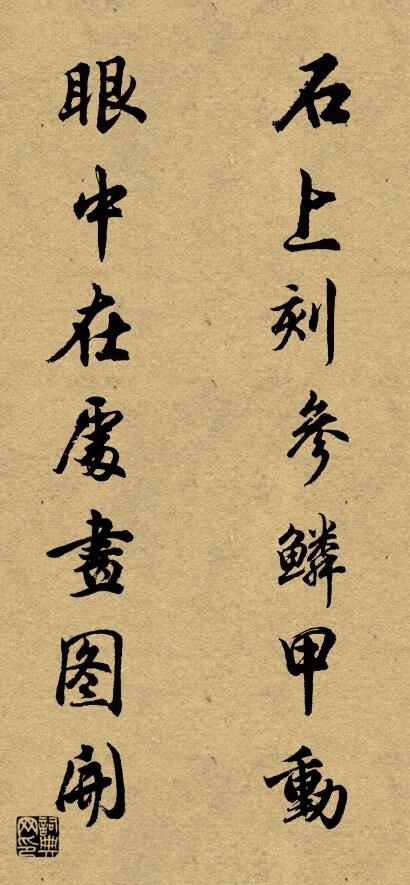 石上刻參鱗甲動
眼中在處畫图開
詞典网印